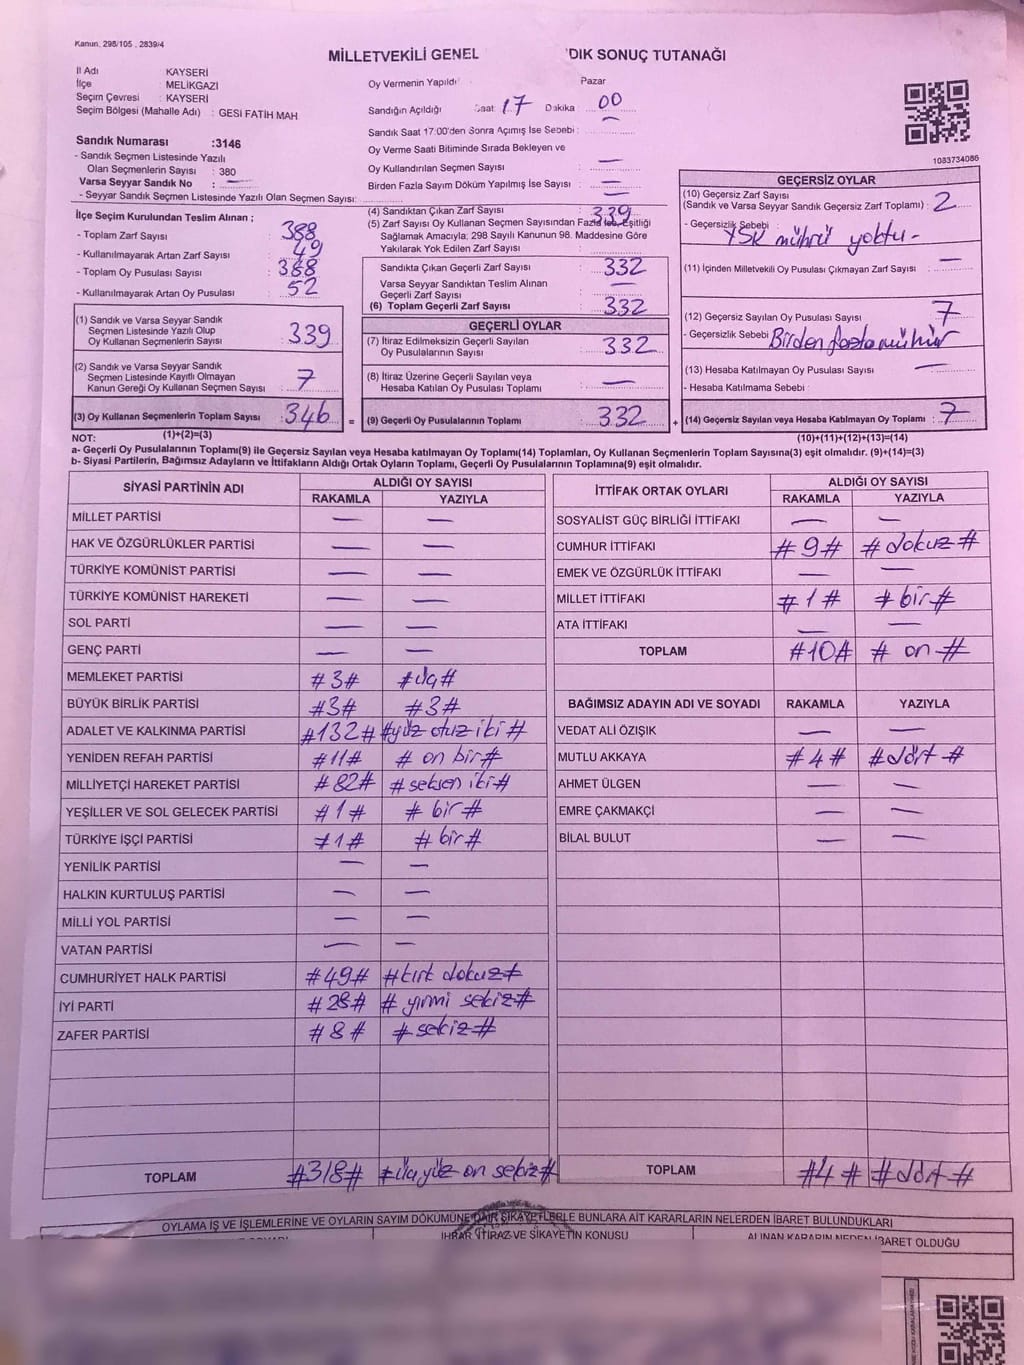 Kanun, 298/105 , 2839/4
MİLLETVEKİLİ GENEL DIK SONUÇ TUTANAĞI
İl Adı KAYSERİ
İlçe MELİKGAZİ
Seçim Çevresi : KAYSERİ
Seçim Bölgesi (Mahalle Adı) : GESI FATİH MAH
Sandık Numarası :3146
- Sandık Seçmen Listesinde Yazılı
Olan Seçmenlerin Sayısı : 380
Varsa Seyyar Sandık No : —
- Seyyar Sandık Seçmen Listesinde Yazılı Olan Seçmen Sayısı:
Oy Vermenin Yapıldı Pazar
Sandığın Açıldığı Saat 17 Dakika 00
Sandık Saat 17:00'den Sonra Açımış İse Sebebi :
Oy Verme Saati Bitiminde Sırada Bekleyen ve
Oy Kullandırılan Seçmen Sayısı —
Birden Fazla Sayım Döküm Yapılmış İse Sayısı : —
1083734086
İlçe Seçim Kurulundan Teslim Alınan ;
- Toplam Zarf Sayısı : 388
- Kullanılmayarak Artan Zarf Sayısı : 49
- Toplam Oy Pusulası Sayısı : 388
- Kullanılmayarak Artan Oy Pusulası : 52
(1) Sandık ve Varsa Seyyar Sandık
Seçmen Listesinde Yazılı Olup
Oy Kullanan Seçmenlerin Sayısı : 339
(2) Sandık ve Varsa Seyyar Sandık
Seçmen Listesinde Kayıtlı Olmayan
Kanun Gereği Oy Kullanan Seçmen Sayısı : 7
(3) Oy Kullanan Seçmenlerin Toplam Sayısı : 346 =
(1)+(2)=(3)
(4) Sandıktan Çıkan Zarf Sayısı : 339
(5) Zarf Sayısı Oy Kullanan Seçmen Sayısından Fazla İse, Eşitliği
Sağlamak Amacıyla; 298 Sayılı Kanunun 98. Maddesine Göre
Yakılarak Yok Edilen Zarf Sayısı :
Sandıkta Çıkan Geçerli Zarf Sayısı : 332
Varsa Seyyar Sandıktan Teslim Alınan
Geçerli Zarf Sayısı : —
(6) Toplam Geçerli Zarf Sayısı : 332
GEÇERLİ OYLAR
(7) İtiraz Edilmeksizin Geçerli Sayılan
Oy Pusulalarının Sayısı : 332
(8) İtiraz Üzerine Geçerli Sayılan veya
Hesaba Katılan Oy Pusulaları Toplamı : —
(9) Geçerli Oy Pusulalarının Toplamı : 332 +
GEÇERSİZ OYLAR
(10) Geçersiz Zarf Sayısı
(Sandık ve Varsa Seyyar Sandık Geçersiz Zarf Toplamı) : 2
- Geçersizlik Sebebi : YSK mührü yoktu-
(11) İçinden Milletvekili Oy Pusulası Çıkmayan Zarf Sayısı : —
(12) Geçersiz Sayılan Oy Pusulası Sayısı : 7
- Geçersizlik Sebebi : Birden fazla mühür
(13) Hesaba Katılmayan Oy Pusulası Sayısı : —
- Hesaba Katılmama Sebebi :
(14) Geçersiz Sayılan veya Hesaba Katılmayan Oy Toplamı : 7
(10)+(11)+(12)+(13)=(14)
NOT:
a- Geçerli Oy Pusulalarının Toplamı(9) ile Geçersiz Sayılan veya Hesaba katılmayan Oy Toplamı(14) Toplamları, Oy Kullanan Seçmenlerin Toplam Sayısına(3) eşit olmalıdır. (9)+(14)=(3)
b- Siyasi Partilerin, Bağımsız Adayların ve İttifakların Aldığı Ortak Oyların Toplamı, Geçerli Oy Pusulalarının Toplamına(9) eşit olmalıdır.
SİYASİ PARTİNİN ADI ALDIĞI OY SAYISI
RAKAMLA YAZIYLA
MİLLET PARTİSİ — —
HAK VE ÖZGÜRLÜKLER PARTİSİ — —
TÜRKİYE KOMÜNİST PARTİSİ — —
TÜRKİYE KOMÜNİST HAREKETİ — —
SOL PARTİ — —
GENÇ PARTİ — —
MEMLEKET PARTİSİ #3# #üç#
BÜYÜK BİRLİK PARTİSİ #3# #3#
ADALET VE KALKINMA PARTİSİ #132# #yüz otuz iki #
YENİDEN REFAH PARTİSİ #11# # on bir#
MİLLİYETÇİ HAREKET PARTİSİ #82# #seksen iki#
YEŞİLLER VE SOL GELECEK PARTİSİ #1# # bir#
TÜRKİYE İŞÇİ PARTİSİ #1# # bir#
YENİLİK PARTİSİ — —
HALKIN KURTULUŞ PARTİSİ — —
MİLLİ YOL PARTİSİ — —
VATAN PARTİSİ — —
CUMHURİYET HALK PARTİSİ #49# #kırk dokuz#
İYİ PARTİ #28# # yirmi sekiz#
ZAFER PARTİSİ #8# #sekiz#
TOPLAM #318# #üçyüz on sekiz#
İTTİFAK ORTAK OYLARI ALDIĞI OY SAYISI
RAKAMLA YAZIYLA
SOSYALİST GÜÇ BİRLİĞİ İTTİFAKI — —
CUMHUR İTTİFAKI #9# #dokuz#
EMEK VE ÖZGÜRLÜK İTTİFAKI — —
MİLLET İTTİFAKI #1# #bir#
ATA İTTİFAKI — —
TOPLAM #10# # on #
BAĞIMSIZ ADAYIN ADI VE SOYADI RAKAMLA YAZIYLA
VEDAT ALİ ÖZIŞIK — —
MUTLU AKKAYA #4# #dört #
AHMET ÜLGEN — —
EMRE ÇAKMAKÇİ — —
BİLAL BULUT — —
TOPLAM #4# #dört#
OYLAMA İŞ VE İŞLEMLERİNE VE OYLARIN SAYIM DÖKÜMÜNE DAİR ŞİKAYETLERLE BUNLARA AİT KARARLARIN NELERDEN İBARET BULUNDUKLARI
İTİRAZ VE ŞİKAYETİN KONUSU
ALINAN KARARIN NEDEN İBARET OLDUĞU